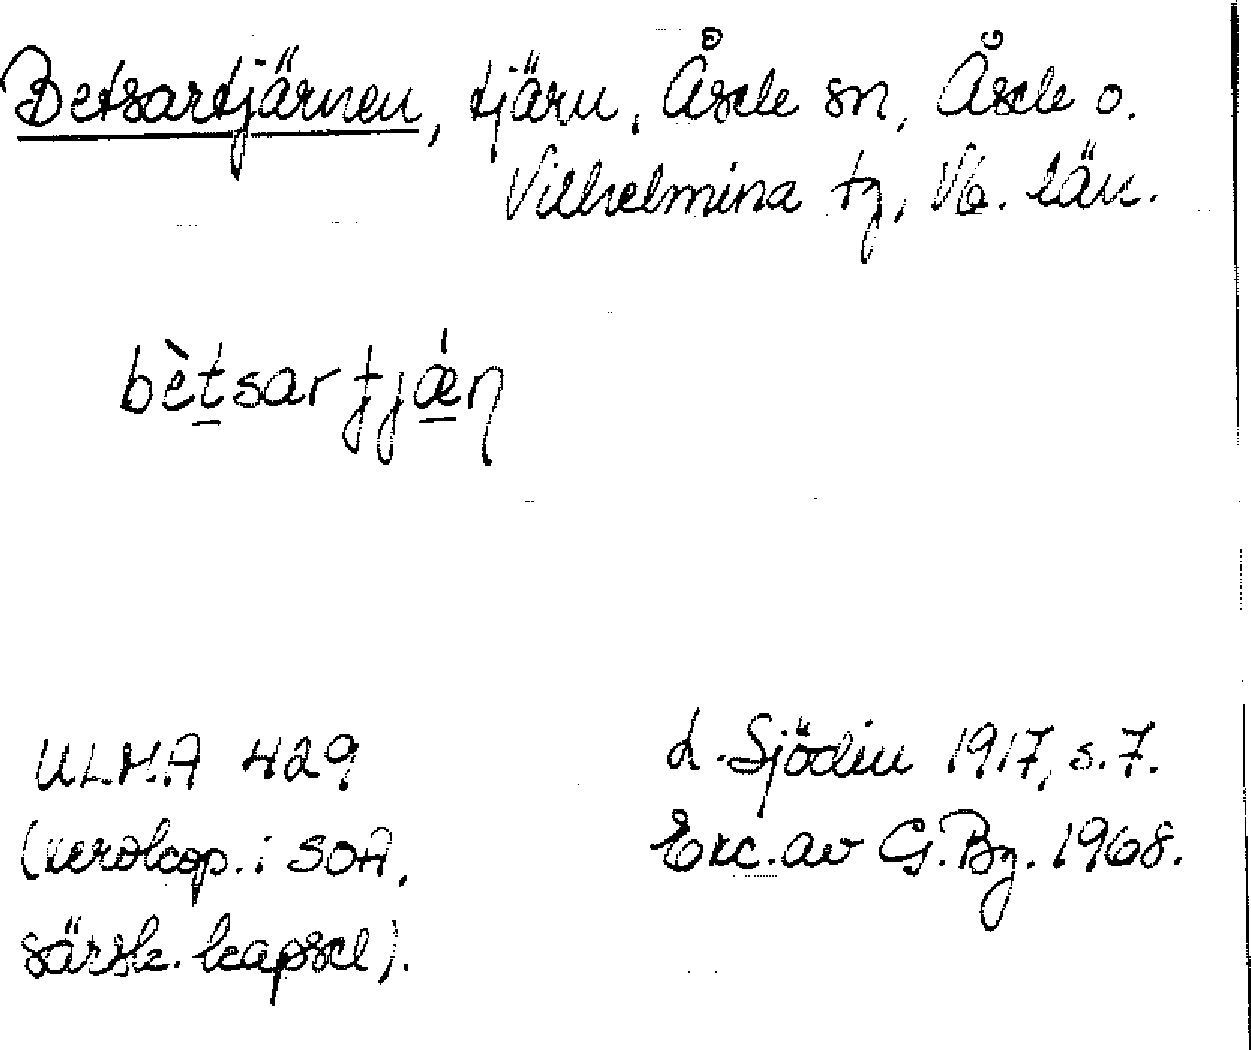 Betsartjärnen, tjärn, Åsele sn, Åsele o.
Vilhelmina tg, Vb. län.
bètsartjǽn
ULMA 429
(xerokop. i SOA,
särsk. kapsel).
L. Sjödin 1917, s. 7.
Exc. av G. Bg. 1968.